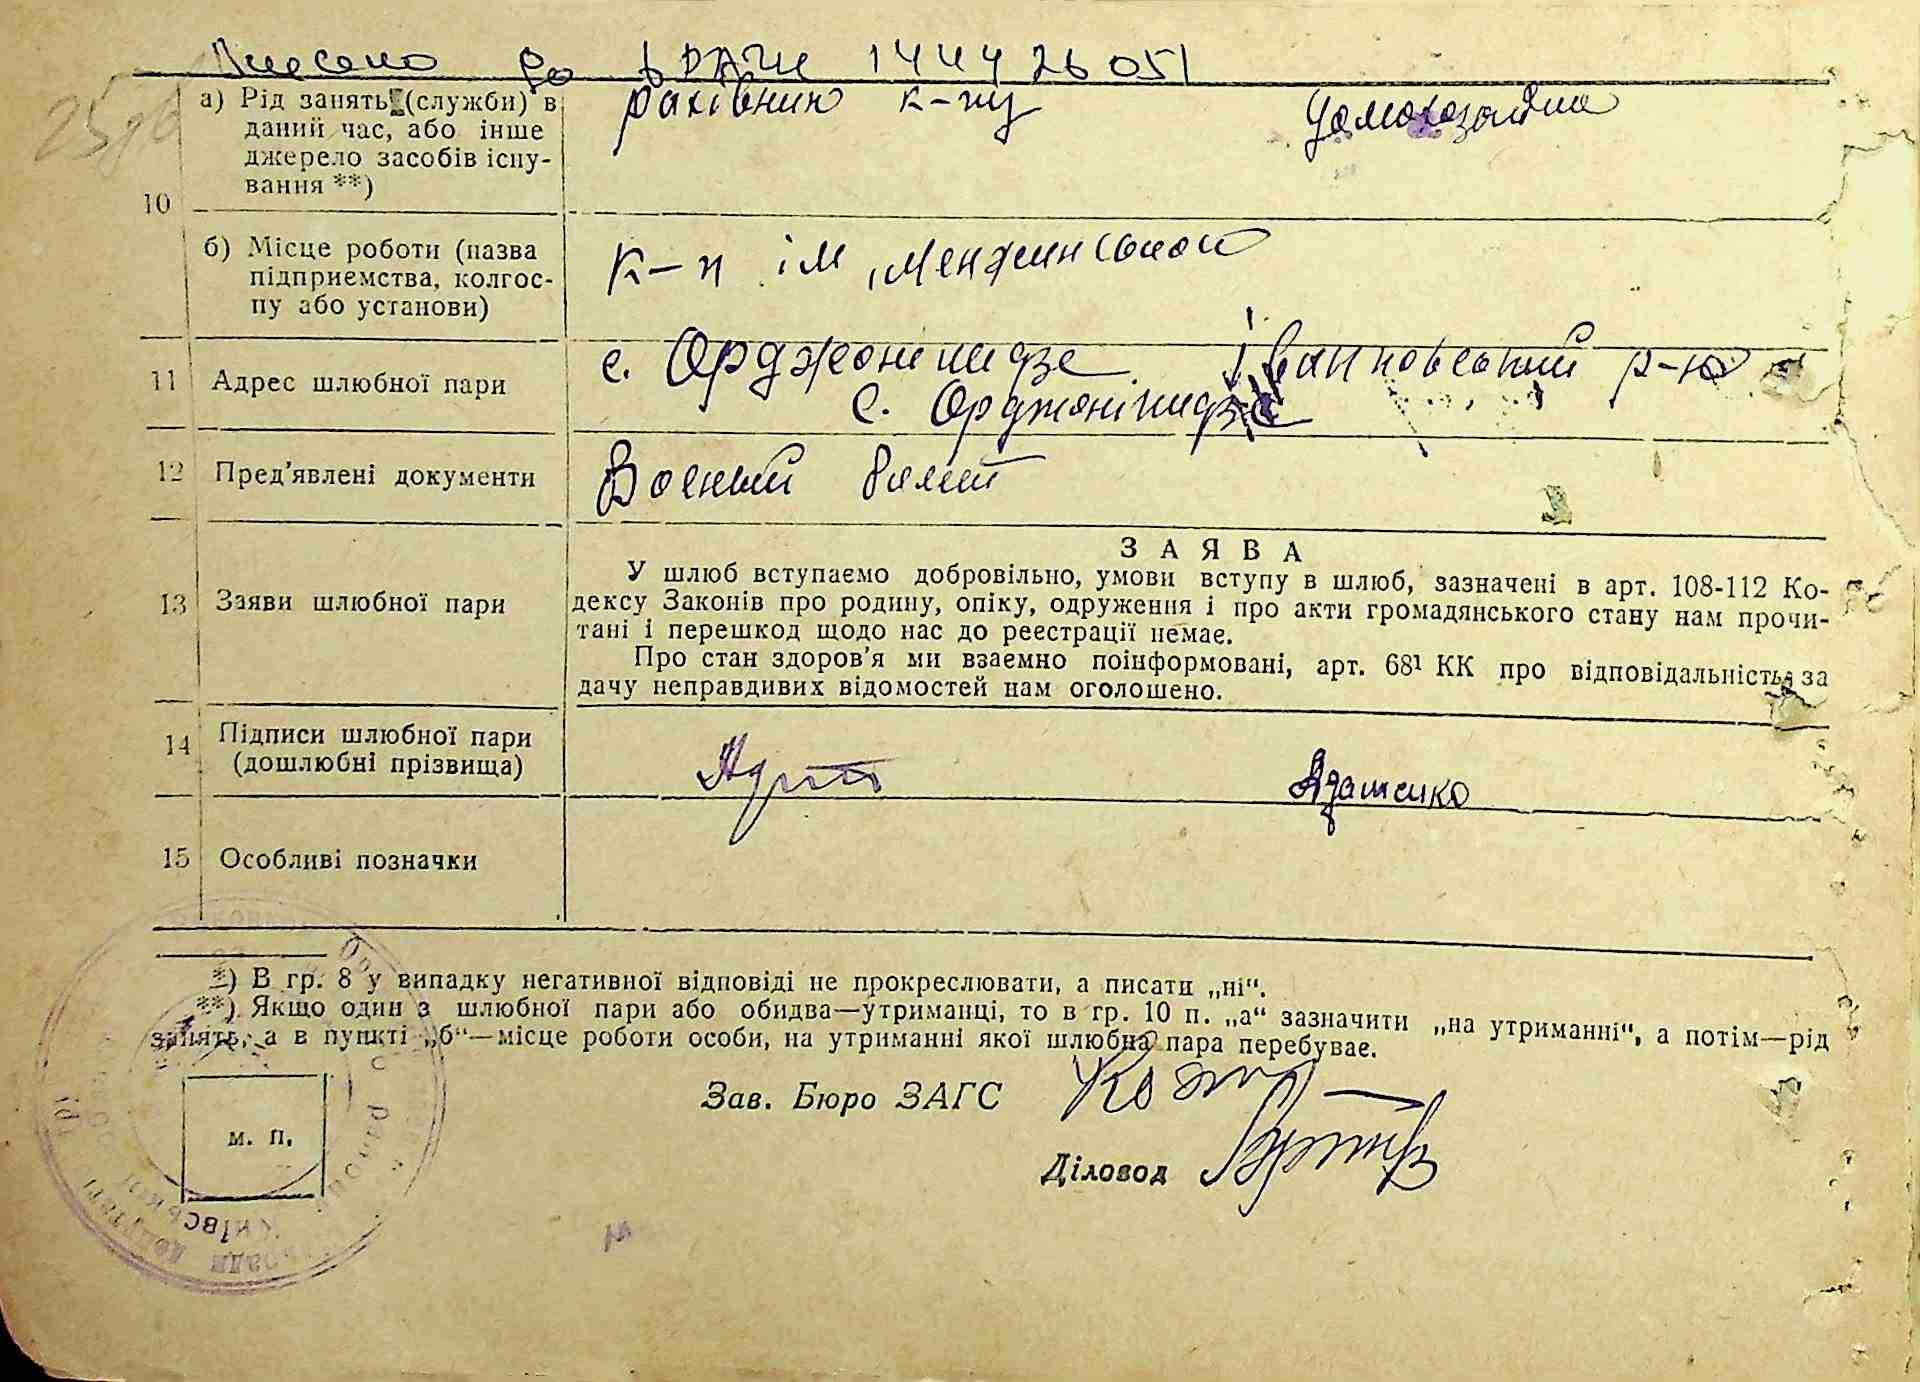 Внесено до ДРАЦС 144426051
25
10
а) Рід занять (служби) в
даний час, або інше
джерело засобів існу-
вання **)
рахівник к-пу
домохозяйка
б) Місце роботи (назва
підприємства, колгос-
пу або установи)
к-п ім Менжинського
11
Адрес шлюбної пари
с. Орджонікидзе Іванковський р-н
с. Орджонікидзе
12
Пред'явлені документи
Военый билет
13
Заяви шлюбної пари
ЗАЯВА
У шлюб вступаємо добровільно, умови вступу в шлюб, зазначені в арт. 108-112 Ко-
дексу Законів про родину, опіку, одруження і про акти громадянського стану нам прочи-
тані і перешкод щодо нас до реестрації немає.
Про стан здоров'я ми взаємно поінформовані, арт. 68¹ КК про відповідальність за
дачу неправдивих відомостей нам оголошено.
14
Підписи шлюбної пари
(дошлюбні прізвища)
Адаменко
15
Особливі позначки
*) В гр. 8 у випадку негативної відповіді не прокреслювати, а писати „ні“.
**) Якщо один з шлюбної пари або обидва—утриманці, то в гр. 10 п. „а“ зазначити „на утриманні“, а потім—рід
занять, а в пункті „б“—місце роботи особи, на утриманні якої шлюбна пара перебуває.
Зав. Бюро ЗАГС
м. п.
Діловод